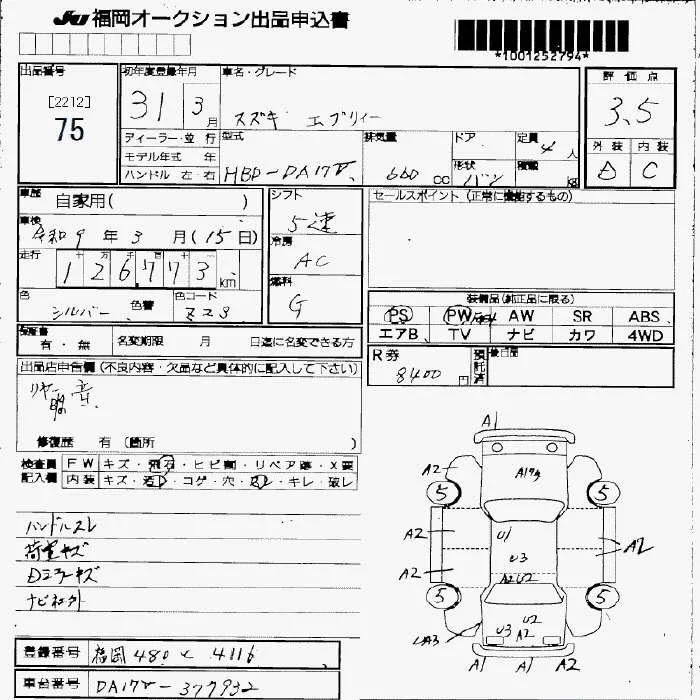 JU 福岡オークション出品申込書
*1001252794*
出品番号
[2212]
75
初年度登録年月
31 3月
車名・グレード
スズキ エブリィー
評価点
3.5
外装 内装
C
ディーラー・並行
モデル年式 年
ハンドル 左・右
型式
HBD-DA17V
排気量
660 cc
ドア
形状
バン
定員
4人
積載
kg
車歴
自家用( )
車検
令和9年3月(15日)
走行
十万 万 千 百 十
126,773 km
色
シルバー
色替
色コード
Z2S
シフト
5速
冷房
AC
燃料
G
セールスポイント (正常に機能するもの)
装備品(純正品に限る)
PS PW AW SR ABS
エアB TV ナビ カワ 4WD
保証書
有・無
名変期限 月 日迄に名変できる方
R券
8400円
預託済
後日品
出品店申告欄 (不良内容・欠品など具体的に記入して下さい)
リヤ
音
修復歴 有 (箇所 )
検査員記入欄
FW キズ・飛石・ヒビ割・リペア跡・X要
内装 キズ・汚レ・コゲ・穴・スレ・キレ・破レ
ハンドルスレ
荷室キズ
Dミラーキズ
登録番号
福岡 480 く 4116
車台番号
DA17V-377932
A1
A2
A17キ
5
5
A2
U1
U3
A2
A2
A2 U2
5
5
UA3
U2
U3 A2
A1 A1 A2